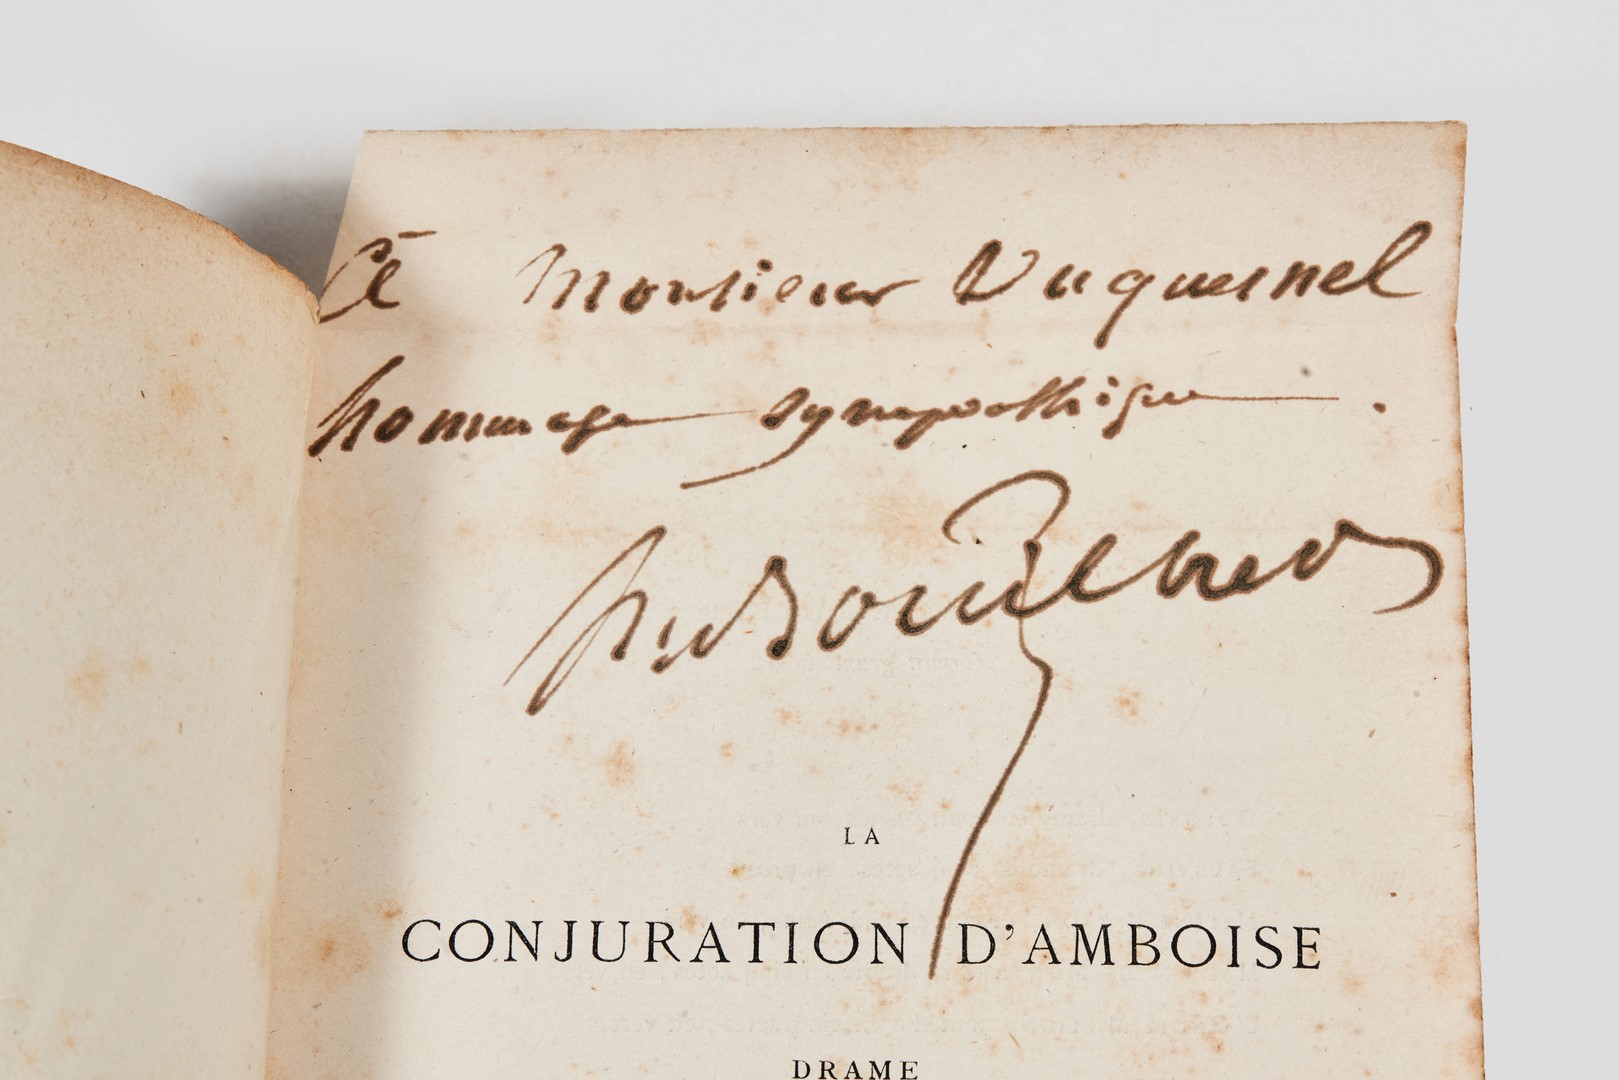 à Monsieur Duquesnel
hommage sympathique.
L. Bouilhet
LA
CONJURATION D'AMBOISE
DRAME